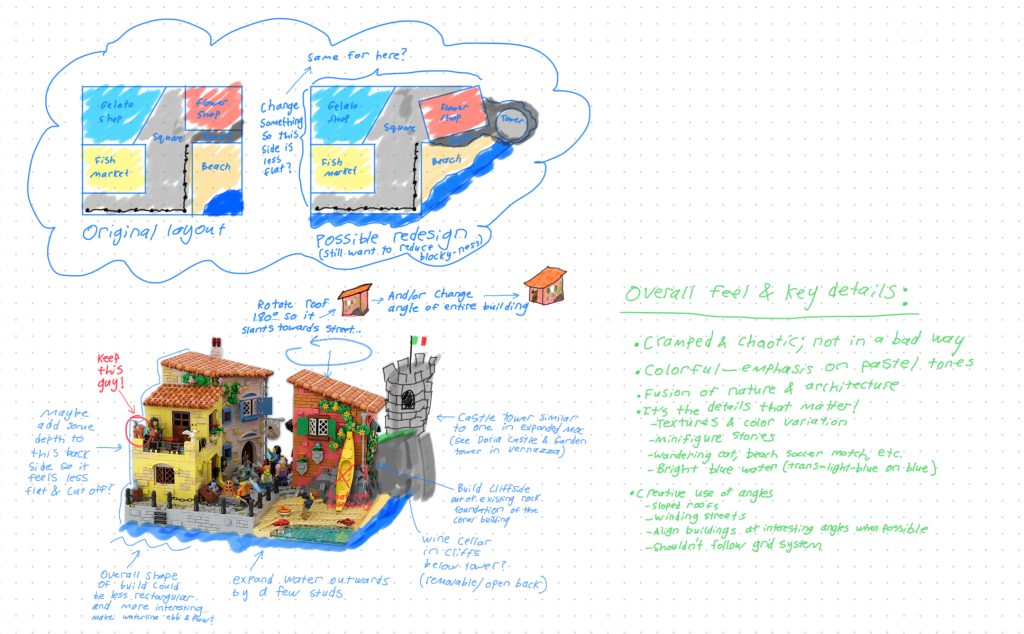 same for here?
Gelato
shop
Flower
shop
Square
Fish
market
Beach
Original layout
Change
something
so this
side is
less
flat?
Gelato
shop
Flower
shop
Tower
Square
Fish
market
Beach
Possible redesign
(still want to reduce
blocky-ness)
Rotate roof
180° so it
slants towards street...
And/or change
angle of entire building
Keep
this
guy!
Maybe
add some
depth to
this back
side so it
feels less
flat & cut off?
Castle tower similar
to one in expanded MOC
(see Doria Castle & Garden
tower in Vernazza)
Build cliffside
out of existing rock
foundation of the
coral building
wine cellar
in cliffs
below tower?
(removable/open back)
Overall shape
of build could
be less rectangular
and more interesting...
make waterline ebb & flow?
expand water outwards
by a few studs
Overall feel & key details:
• Cramped & chaotic; not in a bad way
• Colorful—emphasis on pastel tones
• Fusion of nature & architecture
• It's the details that matter!
- Textures & color variation
- minifigure stories
- Wandering cat, beach soccer match, etc.
- Bright blue water (trans-light-blue on blue)
• Creative use of angles
- Sloped roofs
- Winding streets
- Align buildings at interesting angles when possible
- Shouldn't follow grid system